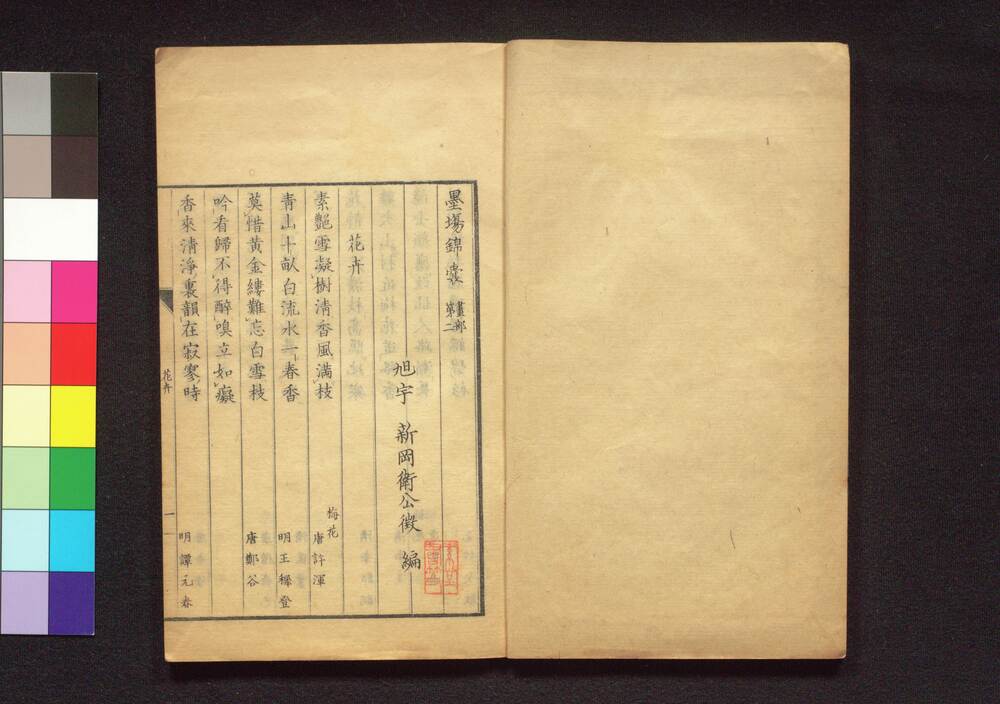 墨場錦嚢 畫部第二
旭宇 薪岡衛公徴 編
花卉
素艷雪凝樹清香風滿枝 梅花 唐許渾
青山十畝白流水一春香 明王穉登
莫惜黃金縷難忘白雪枝 唐鄭谷
吟看歸不得醉嗅立如癡
香來清淨裏韻在寂寥時 明譚元春
花卉 一